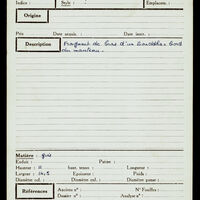 Indice : Style : Emplacem. :
Origine
Prix Date acquis. : Date inscr. :
Description Fragment de bras d'un bord
du manteau.
Matière : gris
Enduit : Patine :
Hauteur : 11 haut. tenon : Longueur :
Largeur : 14,5 Epaisseur : Profondeur :
Diamètre : Diamètre col. : Diamètre panse :
Références Ancien n° : N° Fouilles :
Dossier n° : Analyse n° :